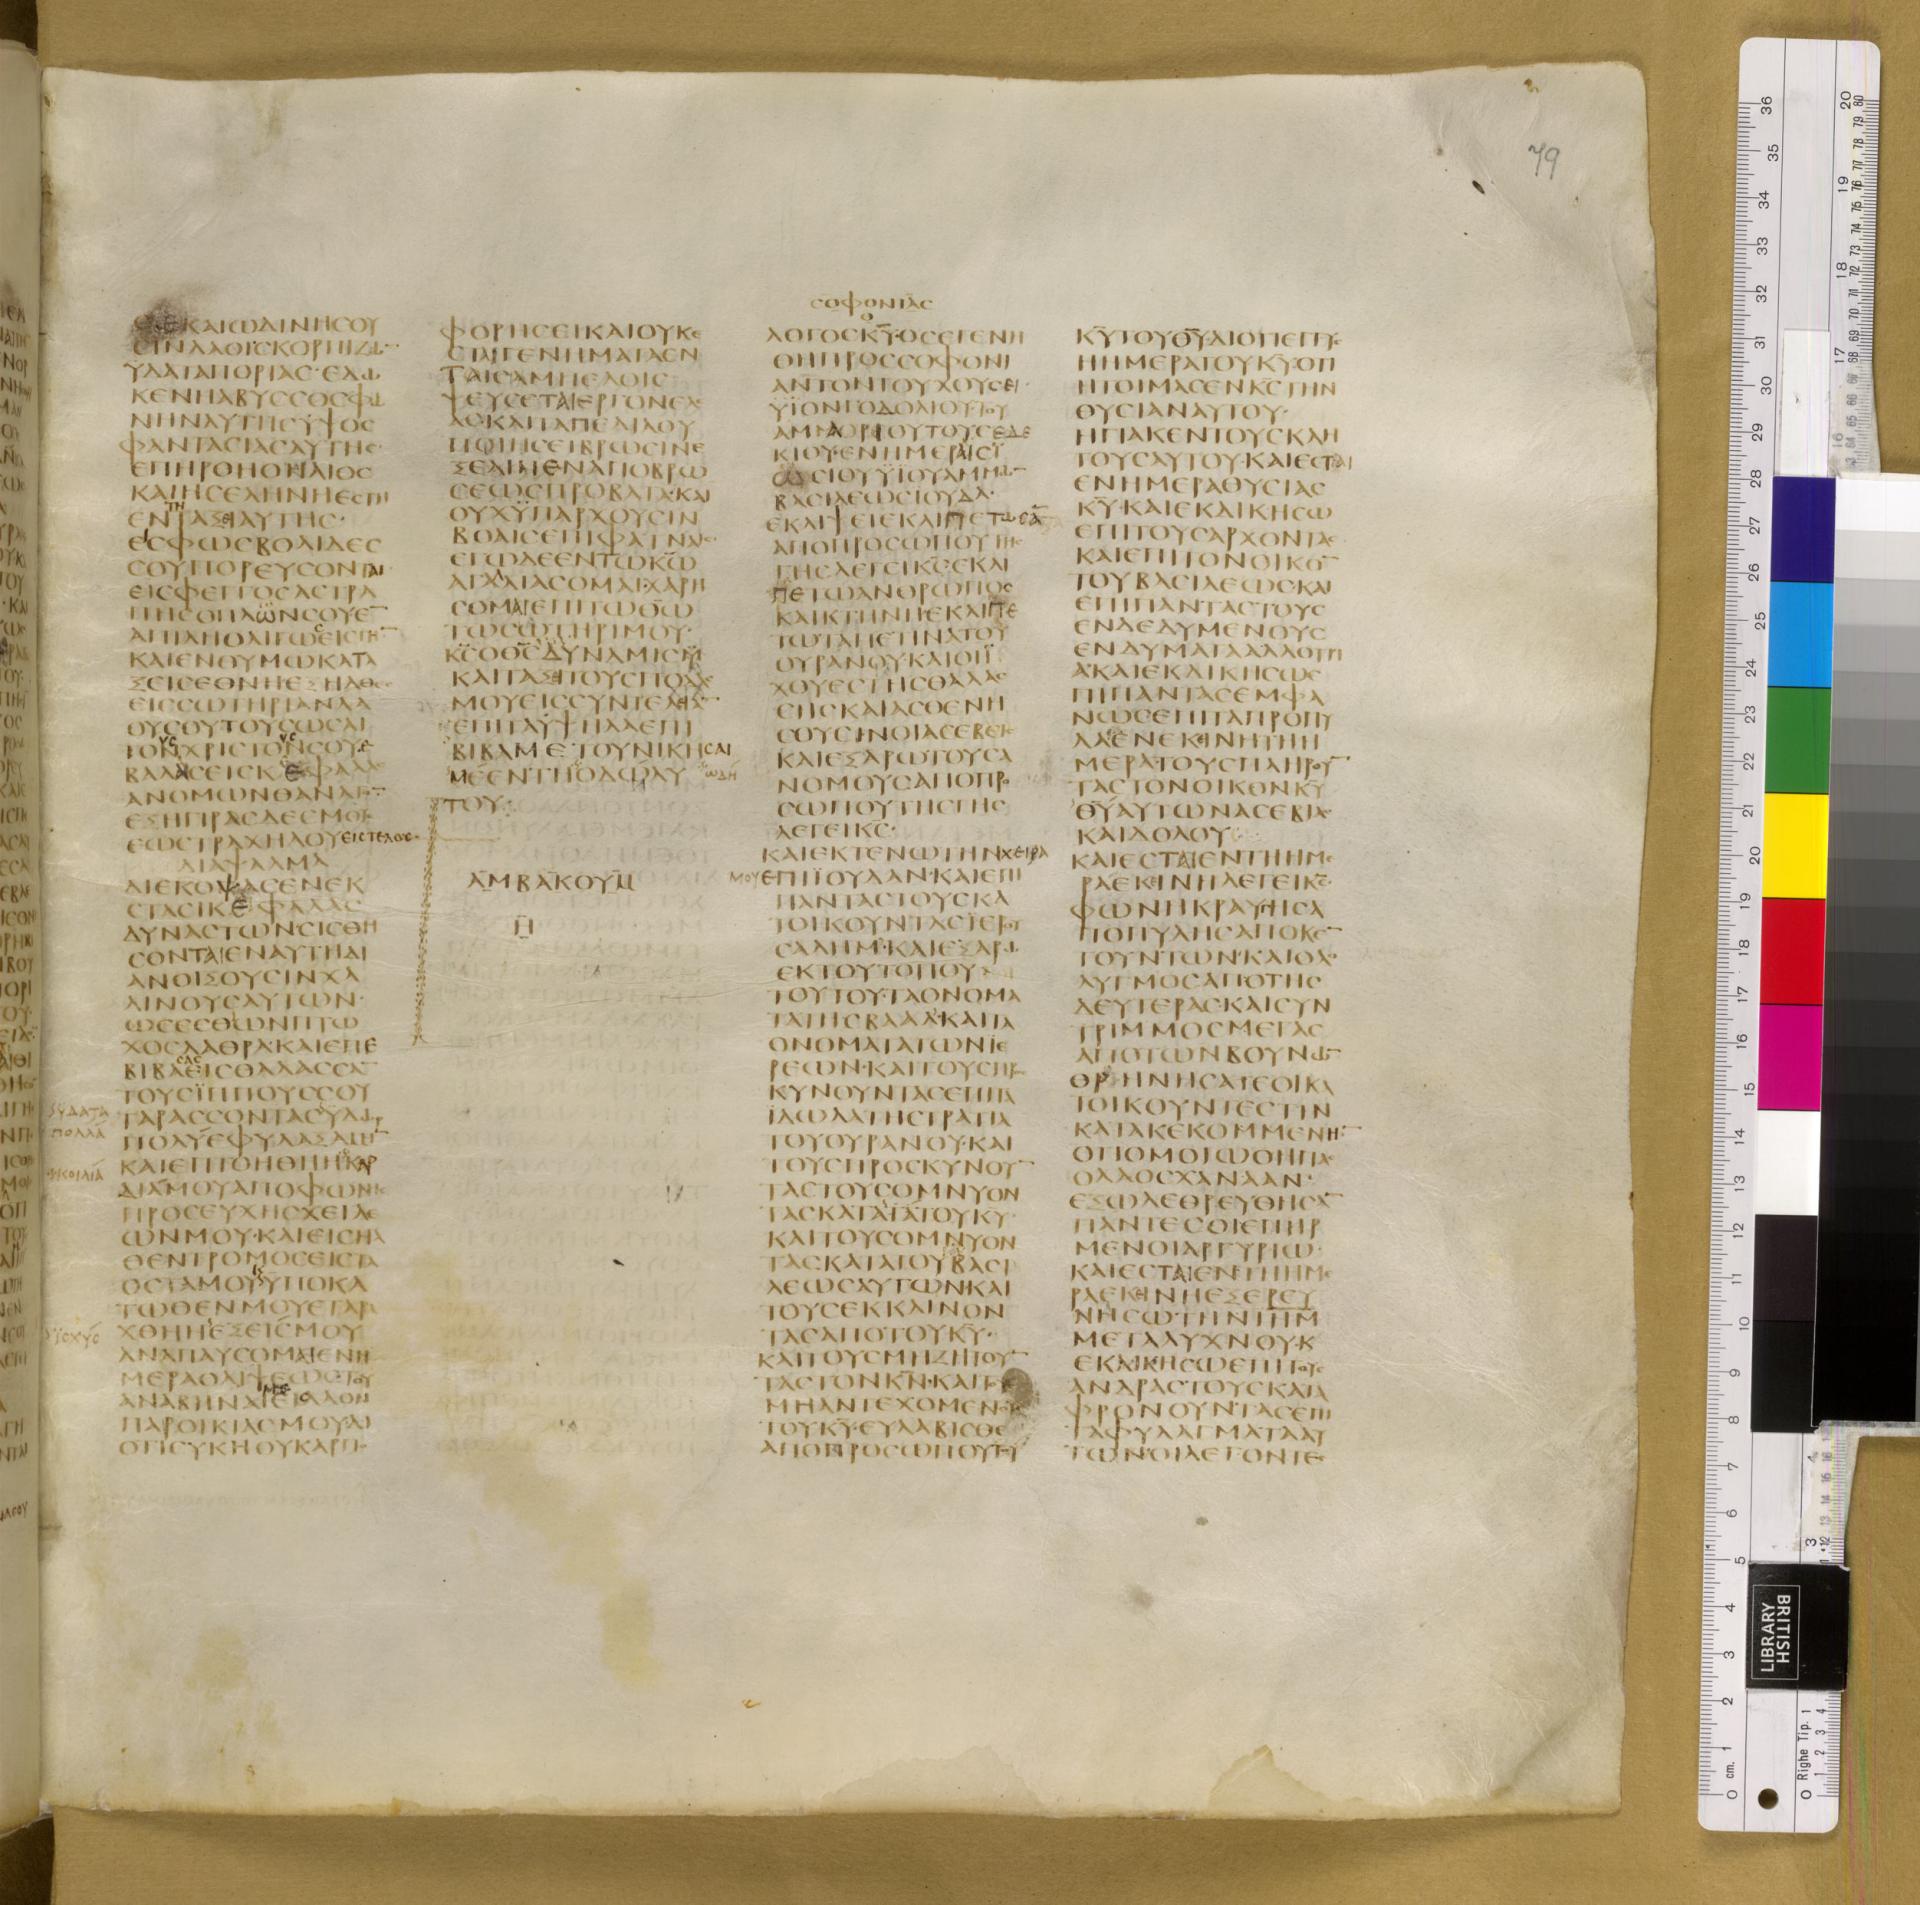 ϹΕΚΑΙΩΔΙΝΗϹΟΥ
ϹΙΝΛΑΟΙϹΚΟΡΠΙΖΩ̅
ΥΔΑΤΑΠΟΡΙΑϹ·ΕΔΩ
ΚΕΝΗΑΒΥϹϹΟϹΦΩ
ΝΗΝΑΥΤΗϹΥΨΟϹ
ΦΑΝΤΑϹΙΑϹΑΥΤΗϹ
ΕΠΗΡΘΗΟΗΛΙΟϹ
ΚΑΙΗϹΕΛΗΝΗΕϹΤΗ
ΕΝΤΗΤΑΞΙΑΥΤΗϹ·
ΕΙϹΦΩϹΒΟΛΙΔΕϹ
ϹΟΥΠΟΡΕΥϹΟΝΤΑΙ
ΕΙϹΦΕΓΓΟϹΑϹΤΡΑ
ΠΗϹΟΠΛΩΝϹΟΥΕ̅
ΑΠΙΛΗΟΛΙΓΩϹΕΙϹΓΗ̅
ΚΑΙΕΝΘΥΜΩΚΑΤΑ
ΞΕΙϹΕΘΝΗΕΞΗΛΘΕϹ
ΕΙϹϹΩΤΗΡΙΑΝΛΑ
ΟΥϹΟΥΤΟΥϹΩϹΑΙ
ΤΟΥϹΧΡΙϹΤΟΥϹϹΟΥΕ
ΒΑΛΕϹΕΙϹΚΕΦΑΛΑϹ
ΑΝΟΜΩΝΘΑΝΑΤΟ̅
ΕΞΗΓΙΡΑϹΔΕϹΜΟΥϹ
ΕΩϹΤΡΑΧΗΛΟΥΕΙϹΤΕΛΟϹ
ΔΙΑΨΑΛΜΑ
ΔΙΕΚΟΨΑϹΕΝΕΚ
ϹΤΑϹΙΚΕΦΑΛΑϹ
ΔΥΝΑϹΤΩΝϹΙϹΘΗ
ϹΟΝΤΑΙΕΝΑΥΤΗΔΙ
ΑΝΟΙΞΟΥϹΙΝΧΑ
ΛΙΝΟΥϹΑΥΤΩΝ·
ΩϹΕϹΘΩΝΠΤΩ
ΧΟϹΛΑΘΡΑΚΑΙΕΠΕ
ΒΙΒΑϹΑϹΕΙϹΘΑΛΑϹϹΑ̅
ΤΟΥϹΪΠΠΟΥϹϹΟΥ
ΤΑΡΑϹϹΟΝΤΑϹΥΔΩΡ
ΥΔΑΤΑ
ΠΟΛΛΑ
ΠΟΛΥΕΦΥΛΑΞΑΜΗ̅
ΚΑΙΕΠΤΟΗΘΗΗΚΑΡ
ΗΚΟΙΛΙΑ
ΔΙΑΜΟΥΑΠΟΦΩΝΗϹ
ΠΡΟϹΕΥΧΗϹΧΕΙΛΕ
ΩΝΜΟΥ·ΚΑΙΕΙϹΗΛ
ΘΕΝΤΡΟΜΟϹΕΙϹΤΑ
ΟϹΤΑΜΟΥΫΠΟΚΑ
ΤΩΘΕΝΜΟΥΕΤΑΡΑ
ΧΘΗΗΕΞΕΙϹΜΟΥ
ΪϹΧΥϹ
ΑΝΑΠΑΥϹΟΜΑΙΕΝΗ
ΜΕΡΑΘΛΙΨΕΩϹΤΟΥ
ΑΝΑΒΗΝΑΙΕΙϹΛΑΟΝ
ΠΑΡΟΙΚΙΑϹΜΟΥΔΙ
ΟΤΙϹΥΚΗΟΥΚΑΡΠΟ
ΦΟΡΗϹΕΙΚΑΙΟΥΚΕ
ϹΤΑΙΓΕΝΗΜΑΤΑΕΝ
ΤΑΙϹΑΜΠΕΛΟΙϹ
ΨΕΥϹΕΤΑΙΕΡΓΟΝΕΛ
ΑΟΚΑΙΤΑΠΕΔΙΑΟΥ
ΠΟΙΗϹΕΙΒΡΩϹΙΝΕ
ΞΕΛΙΠΕΝΑΠΟΒΡΩ
ϹΕΩϹΠΡΟΒΑΤΑ·ΚΑΙ
ΟΥΧΫΠΑΡΧΟΥϹΙΝ
ΒΟΑΙϹΕΠΙΦΑΤΝΑΙϹ
ΕΓΩΔΕΕΝΤΩΚ̅Ω̅
ΑΓΑΛΛΙΑϹΟΜΑΙ·ΧΑΡΗ
ϹΟΜΑΙΕΠΙΤΩΘ̅Ω̅
ΤΩϹΩΤΗΡΙΜΟΥ·
Κ̅Ϲ̅ΟΘ̅Ϲ̅ΔΥΝΑΜΙϹΜΟΥ
ΚΑΙΤΑΞΙΤΟΥϹΠΟΔΑϹ
ΜΟΥΕΙϹϹΥΝΤΕΛΙΑ̅
ΕΠΙΤΑΫΨΗΛΑΕΠΙ
ΒΙΒΑΜΕ·ΤΟΥΝΙΚΗϹΑΙ
ΜΕΕΝΤΗΟΔΩΑΥ
ΩΔΗ
ΤΟΥ:
ΑΜΒΑΚΟΥΜ
Η̅
ϹΟΦΟΝΙΑϹ
ΛΟΓΟϹΚ̅Υ̅ΟϹΕΓΕΝΗ
ΘΗΠΡΟϹϹΟΦΟΝΙ
ΑΝΤΟΝΤΟΥΧΟΥϹΕΙ·
ΥΪΟΝΓΟΔΟΛΙΟΥΤΟΥ
ΑΜΜΟΡΙΟΥΤΟΥϹΕΔΕ
ΚΙΟΥ·ΕΝΗΜΕΡΑΙϹΪ
ΩϹΙΟΥΫΙΟΥΑΜΜΩ̅
ΒΑϹΙΛΕΩϹΙΟΥΔΑ·
ΕΚΛΙΨΕΙΕΚΛΙΠΕΤΩϹΑ̅
ΑΠΟΠΡΟϹΩΠΟΥΤΗϹ
ΓΗϹΛΕΓΕΙΚ̅Ϲ̅ΕΚΛΙ
ΠΕΤΩΑΝΘΡΩΠΟϹ
ΚΑΙΚΤΗΝΗΕΚΛΙΠΕ
ΤΩΤΑΠΕΤΙΝΑΤΟΥ
ΟΥΡΑΝΟΥ·ΚΑΙΟΙΪ
ΧΘΥΕϹΤΗϹΘΑΛΑϹ
ϹΗϹΚΑΙΑϹΘΕΝΗ
ϹΟΥϹΙΝΟΙΑϹΕΒΕΙϹ
ΚΑΙΕΞΑΡΩΤΟΥϹΑ
ΝΟΜΟΥϹΑΠΟΠΡΟ
ϹΩΠΟΥΤΗϹΓΗϹ
ΛΕΓΕΙΚ̅Ϲ̅·
ΚΑΙΕΚΤΕΝΩΤΗΝΧΕΙΡΑ
ΜΟΥΕΠΙΪΟΥΔΑΝ·ΚΑΙΕΠΙ
ΠΑΝΤΑϹΤΟΥϹΚΑ
ΤΟΙΚΟΥΝΤΑϹΪΕΡΟΥ
ϹΑΛΗΜ·ΚΑΙΕΞΑΡΩ
ΕΚΤΟΥΤΟΠΟΥ
ΤΟΥΤΟΥ·ΤΑΟΝΟΜΑ
ΤΑΤΗϹΒΑΑΛ·ΚΑΙΤΑ
ΟΝΟΜΑΤΑΤΩΝΪΕ
ΡΕΩΝ·ΚΑΙΤΟΥϹΠΡΟϹ
ΚΥΝΟΥΝΤΑϹΕΠΙΤΑ
ΔΩΜΑΤΗϹΤΡΑΤΙΑ
ΤΟΥΟΥΡΑΝΟΥ·ΚΑΙ
ΤΟΥϹΠΡΟϹΚΥΝΟΥ̅
ΤΑϹΤΟΥϹΟΜΝΥΟΝ
ΤΑϹΚΑΤΑΤΟΥΚ̅Υ̅·
ΚΑΙΤΟΥϹΟΜΝΥΟΝ
ΤΑϹΚΑΤΑΤΟΥΒΑϹΙ
ΛΕΩϹΑΥΤΩΝ·ΚΑΙ
ΤΟΥϹΕΚΚΛΙΝΟΝ
ΤΑϹΑΠΟΤΟΥΚ̅Υ̅·
ΚΑΙΤΟΥϹΜΗΖΗΤΟΥ̅
ΤΑϹΤΟΝΚ̅Ν̅·ΚΑΙΤΟΥϹ
ΜΗΑΝΤΕΧΟΜΕΝΟΥϹ
ΤΟΥΚ̅Υ̅·ΕΥΛΑΒΙϹΘΕ
ΑΠΟΠΡΟϹΩΠΟΥΤΟΥ
Κ̅Υ̅ΤΟΥΘ̅Υ̅ΔΙΟΤΙΕΓΓΥϹ
ΗΗΜΕΡΑΤΟΥΚ̅Υ̅ΟΤΙ
ΗΤΟΙΜΑϹΕΝΚ̅Ϲ̅ΤΗΝ
ΘΥϹΙΑΝΑΥΤΟΥ·
ΗΓΙΑΚΕΝΤΟΥϹΚΛΗ
ΤΟΥϹΑΥΤΟΥ·ΚΑΙΕϹΤΑΙ
ΕΝΗΜΕΡΑΘΥϹΙΑϹ
Κ̅Υ̅·ΚΑΙΕΚΔΙΚΗϹΩ
ΕΠΙΤΟΥϹΑΡΧΟΝΤΑϹ
ΚΑΙΕΠΙΤΟΝΟΙΚΟ̅
ΤΟΥΒΑϹΙΛΕΩϹ·ΚΑΙ
ΕΠΙΠΑΝΤΑϹΤΟΥϹ
ΕΝΔΕΔΥΜΕΝΟΥϹ
ΕΝΔΥΜΑΤΑΑΛΛΟΤΡΙ
Α·ΚΑΙΕΚΔΙΚΗϹΩΕ
ΠΙΠΑΝΤΑϹΕΜΦΑ
ΝΩϹΕΠΙΤΑΠΡΟΠΥ
ΛΑΕΝΕΚΙΝΗΤΗΗ
ΜΕΡΑ·ΤΟΥϹΠΛΗΡΟΥ̅
ΤΑϹΤΟΝΟΙΚΟΝΚ̅Υ̅
Θ̅Υ̅ΑΥΤΩΝΑϹΕΒΙΑϹ
ΚΑΙΔΟΛΟΥ
ΚΑΙΕϹΤΑΙΕΝΤΗΗΜΕ
ΡΑΕΚΙΝΗΛΕΓΕΙΚ̅Ϲ̅
ΦΩΝΗΚΡΑΥΓΗϹΑ
ΠΟΠΥΛΗϹΑΠΟΚΕ̅
ΤΟΥΝΤΩΝ·ΚΑΙΟΛΟ
ΛΥΓΜΟϹΑΠΟΤΗϹ
ΔΕΥΤΕΡΑϹ·ΚΑΙϹΥΝ
ΤΡΙΜΜΟϹΜΕΓΑϹ
ΑΠΟΤΩΝΒΟΥΝΩ̅
ΘΡΗΝΗϹΑΤΕΟΙΚΑ
ΤΟΙΚΟΥΝΤΕϹΤΗΝ
ΚΑΤΑΚΕΚΟΜΜΕΝΗ̅
ΟΤΙΟΜΟΙΩΘΗΠΑϹ
ΟΛΑΟϹΧΑΝΑΑΝ·
ΕΞΩΛΕΘΡΕΥΘΗϹΑ̅
ΠΑΝΤΕϹΟΙΕΠΗΡ
ΜΕΝΟΙΑΡΓΥΡΙΩ·
ΚΑΙΕϹΤΑΙΕΝΤΗΗΜΕ
ΡΑΕΚΙΝΗΕΞΕΡΕΥ
ΝΗϹΩΤΗΝΙΗΜ
ΜΕΤΑΛΥΧΝΟΥ·Κ
ΕΚΔΙΚΗϹΩΕΠΙΤΟΥϹ
ΑΝΔΡΑϹΤΟΥϹΚΑΤΑ
ΦΡΟΝΟΥΝΤΑϹΕΠΙ
ΤΑΦΥΛΑΓΜΑΤΑΑΥ
ΤΩΝ·ΟΙΛΕΓΟΝΤΕϹ
79